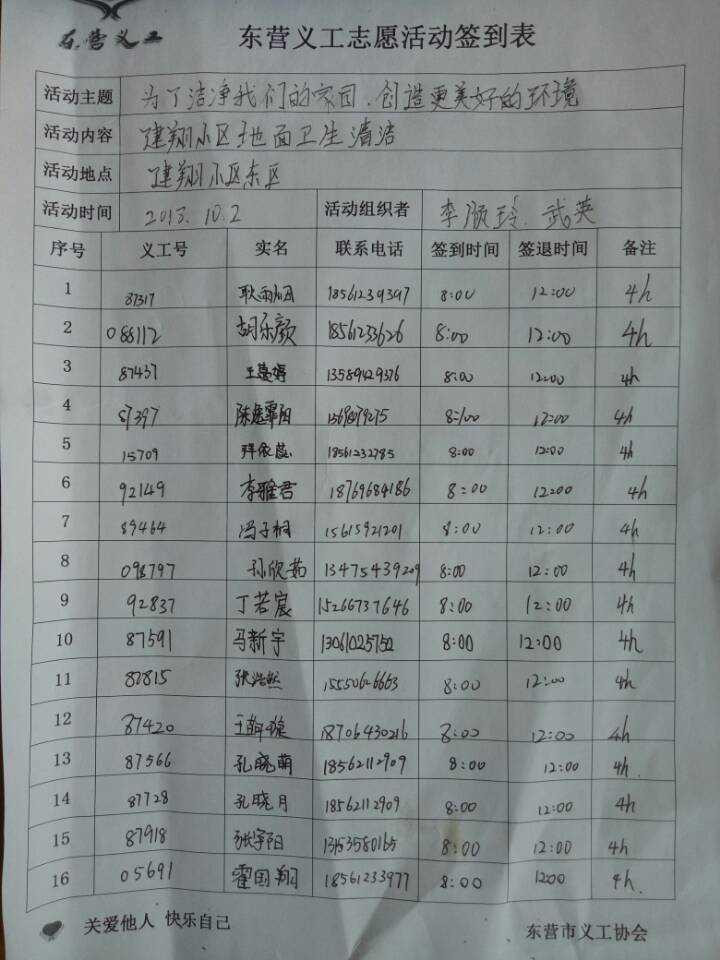 东营义工 东营义工志愿活动签到表
活动主题 为了洁净我们的家园、创造更美好的环境
活动内容 建翔小区地面卫生清洁
活动地点 建翔小区东区
活动时间 2013.10.2 活动组织者 李顺玲、武英
序号 义工号 实名 联系电话 签到时间 签退时间 备注
1 87317 耿雨田 18561239397 8:00 12:00 4h
2 088112 胡乐颜 18561233626 8:00 12:00 4h
3 87437 王曼婷 13589429376 8:00 12:00 4h
4 87397 陈逸霏阳 8:00 12:00 4h
5 15709 18561232785 8:00 12:00 4h
6 92149 李雅君 18769684186 8:00 12:00 4h
7 89464 冯子桐 15615921201 8:00 12:00 4h
8 098797 孙欣茹 13475439209 8:00 12:00 4h
9 92837 丁若宸 15266737646 8:00 12:00 4h
10 87591 马新宇 13061025752 8:00 12:00 4h
11 87815 张浩然 15550626663 8:00 12:00 4h
12 87420 18706430216 8:00 12:00 4h
13 87566 孔晓萌 18562112909 8:00 12:00 4h
14 87728 孔晓月 18562112909 8:00 12:00 4h
15 87918 张宇阳 13153580165 8:00 12:00 4h
16 05691 霍国翔 18561233977 8:00 12:00 4h
关爱他人 快乐自己 东营市义工协会